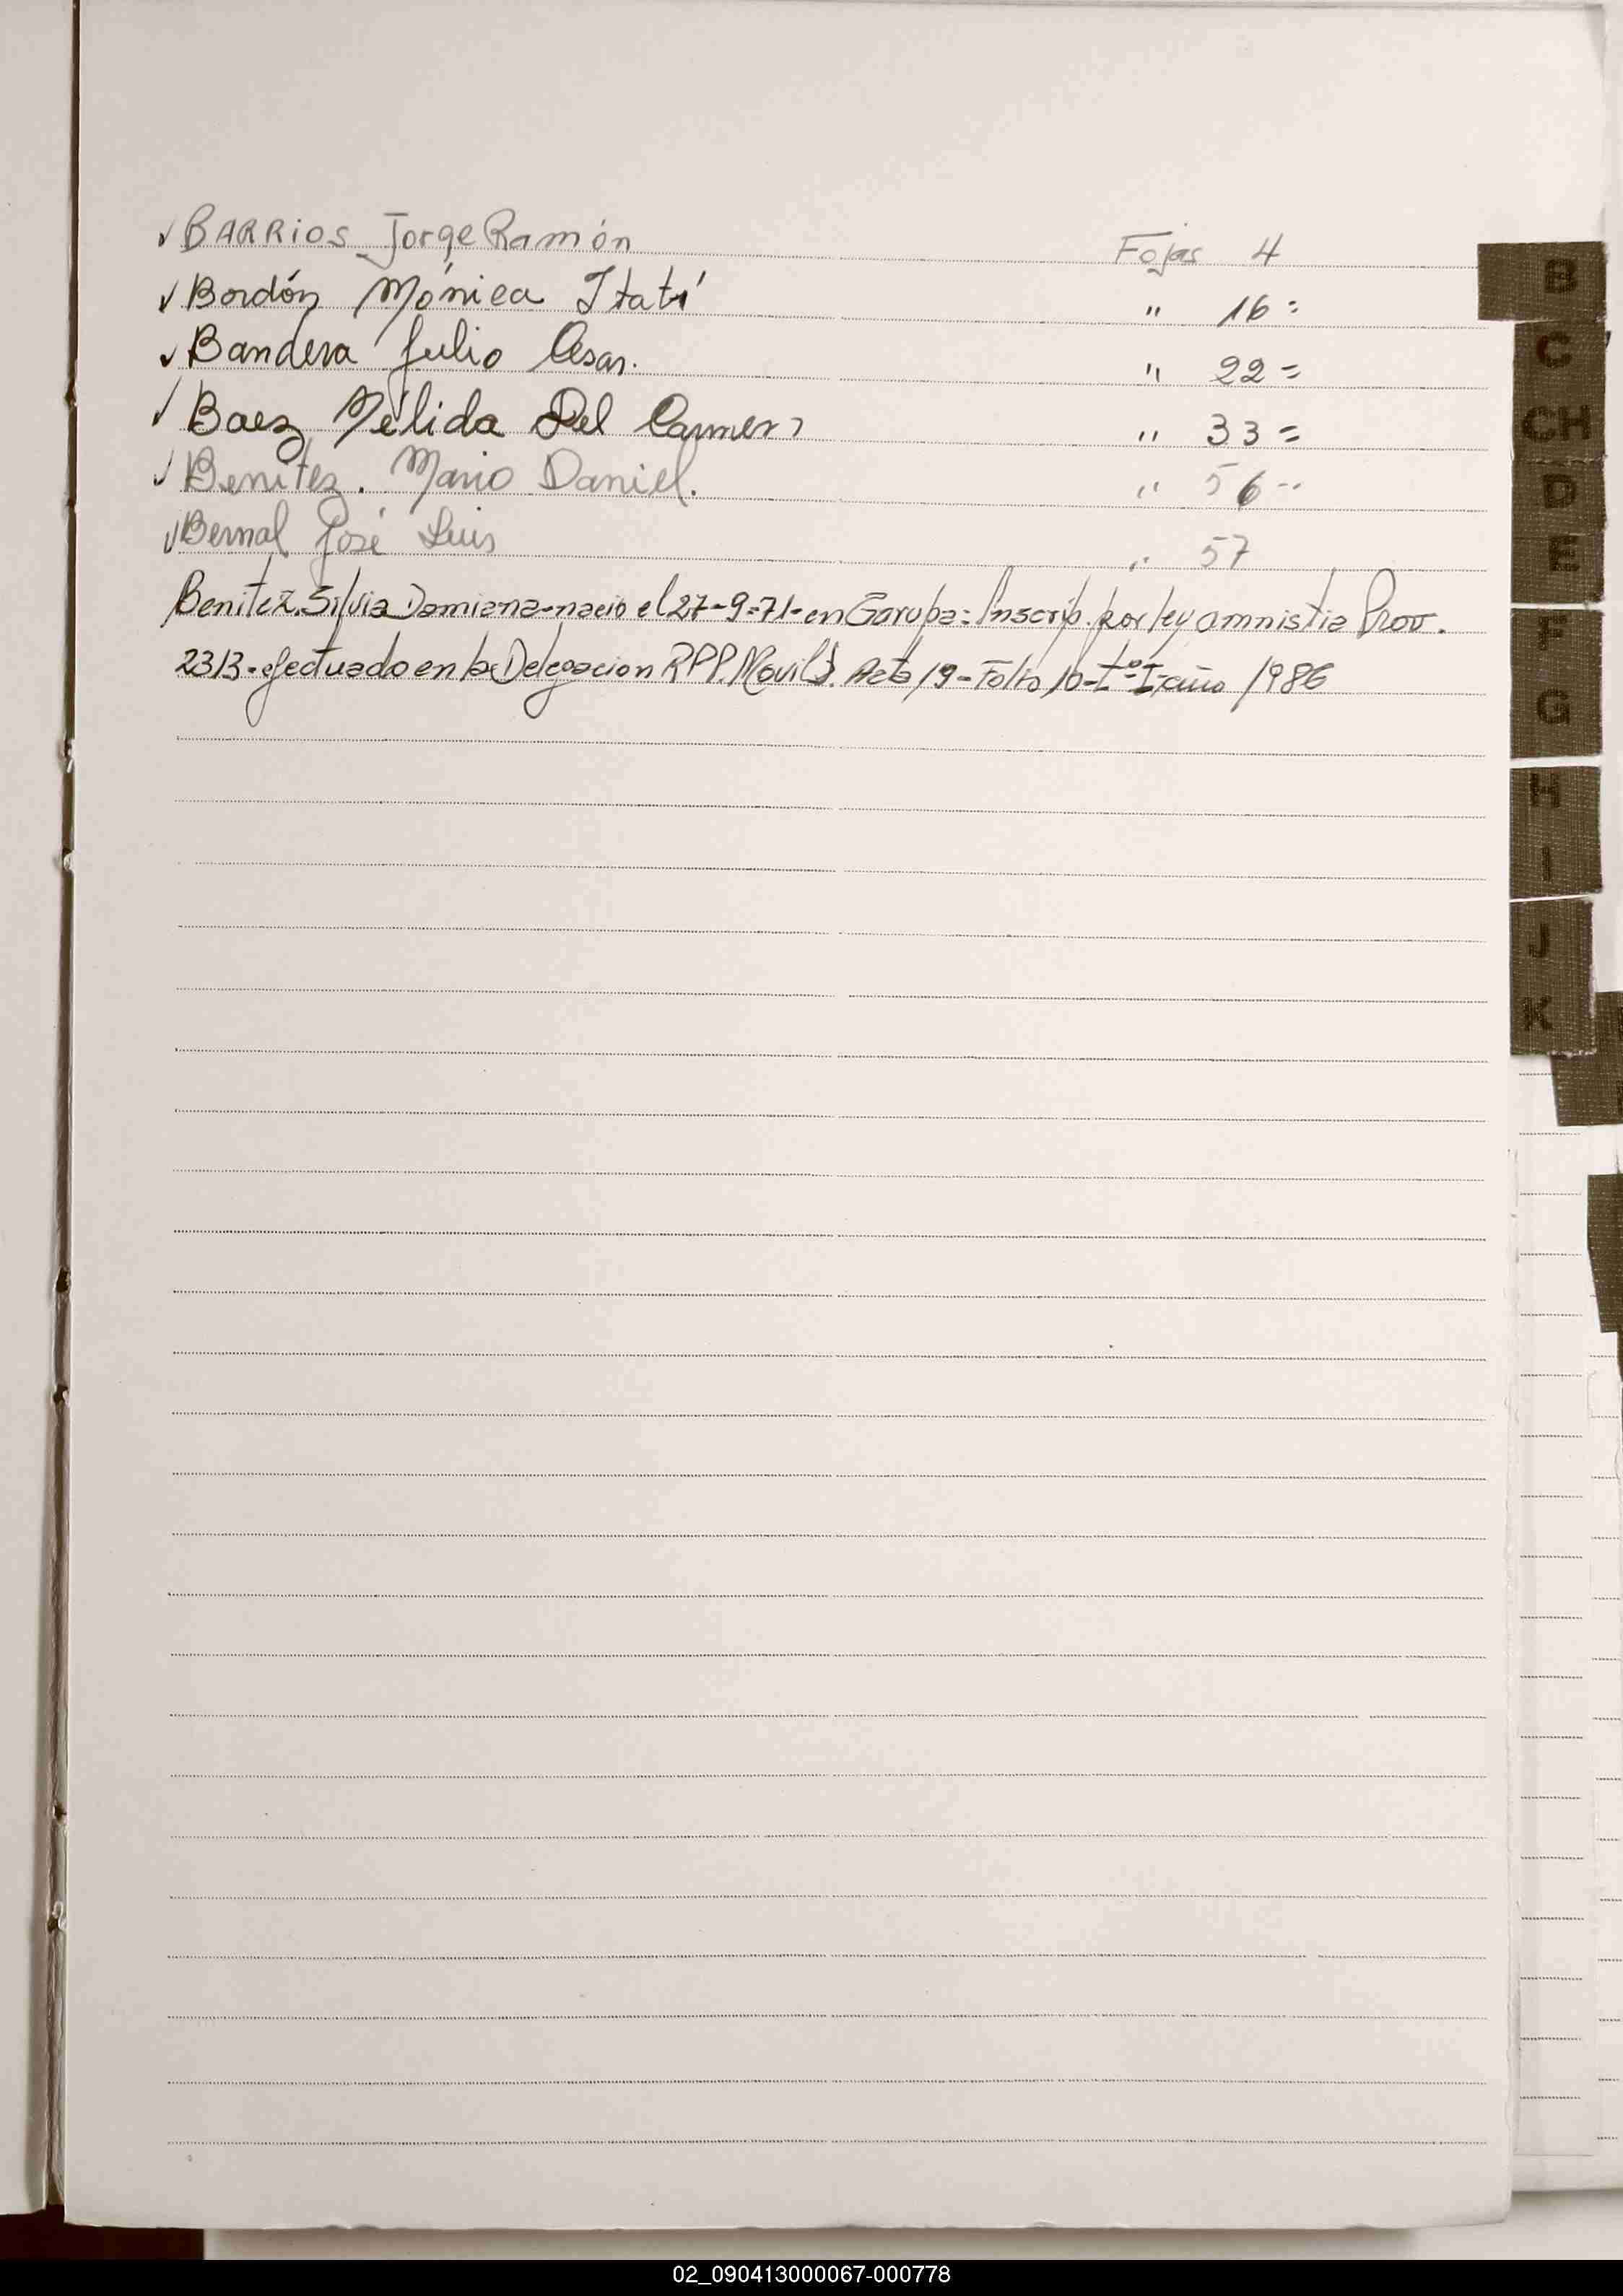 ✓ BARRIOS Jorge Ramón Fojas 4
✓ Bordón Mónica Itatí " 16=
✓ Bandera Julio Cesar. " 22=
✓ Baez Nélida Del Carmen " 33=
✓ Benitez. Mario Daniel. " 56--
✓ Bernal José Luis " 57
Benitez. Silvia Damiana-nacio el 27-9-71-en Garupa= Inscrip. por ley amnistia Prov.
2313-efectuado en la Delegacion RPP. Movil Acta 19-Folio 10-tº-I-año 1986
B
C
CH
D
E
F
G
H
I
J
K
02_090413000067-000778